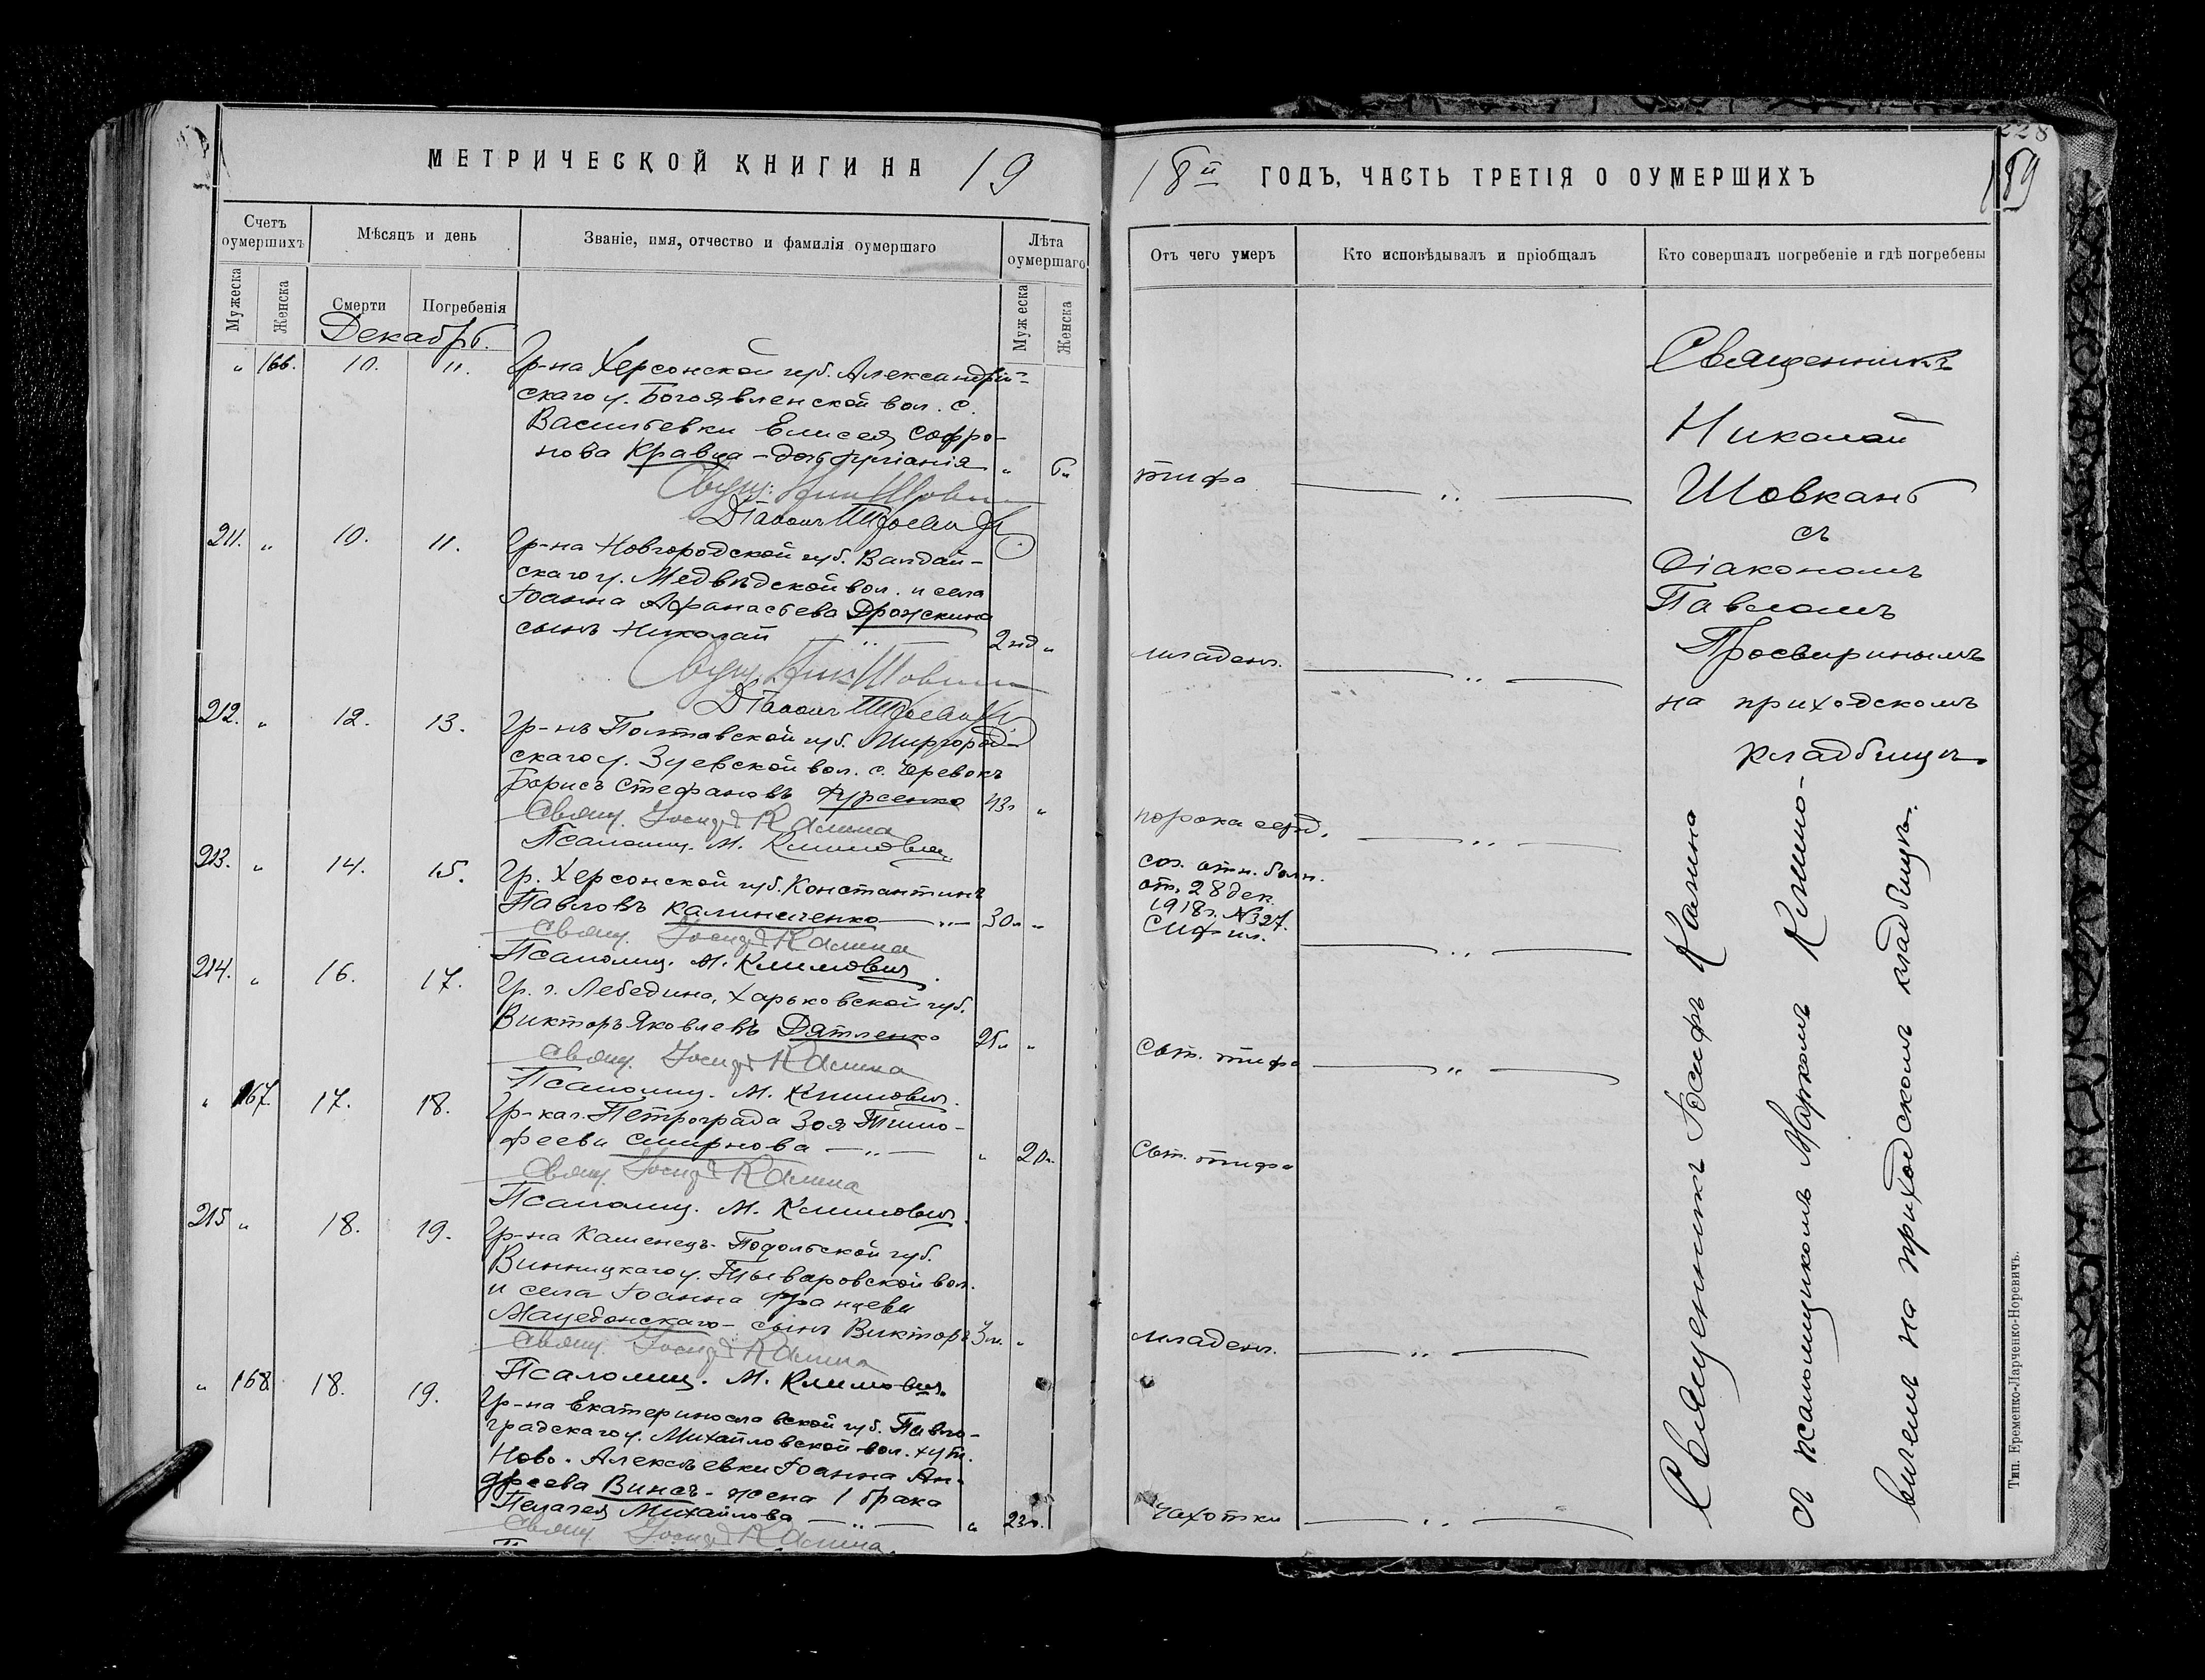 МЕТРИЧЕСКОЙ КНИГИ НА 19
Счетъ оумершихъ
Мѣсяцъ и день
Званіе, имя, отчество и фамилія оумершаго
Лѣта оумершаго
Мужеска
Женска
Смерти
Погребенія
Муж еска
Женска
Декабрь.
" 166. 10. 11. Гр-на Херсонской губ. Александрій-
скаго у. Богоявленской вол. с.
Васильевки Елисея Софро-
нова Кравца - дочь
Діаконъ
211. " 10. 11. Гр-на Новгородской губ. Валдай-
скаго у. Медвѣдской вол. и села
Іоанна Афанасьева Дрожскина
сынъ Николай 2 нд "
Діаконъ
212. " 12. 13. Гр-нъ Полтавской губ. Миргород-
скаго у. Зуевской вол. с. Черевокъ
Борисъ Стефановъ Фурсенко 43 г "
Свящ. Іосифъ Калина
Псаломщ. М. Климович
213. " 14. 15. Гр. Херсонской губ. Константинъ
Павловъ Калиниченко — " — 30 л "
Свящ. Іосифъ Калина
Псаломщ. М. Климович.
214. " 16. 17. Гр. г. Лебедина, Харьковской губ.
Викторъ Яковлевъ Дятленко 25 л "
Свящ. Іосифъ Калина
Псаломщ. М. Климович.
" 167. 17. 18. Гр-ка г. Петрограда Зоя Тимо-
феева Смирнова — " — "
Свящ. Іосифъ Калина
Псаломщ. М. Климович.
215 " 18. 19. Гр-на Каменецъ-Подольской губ.
Винницкаго у. Тываровской вол.
и села Іоанна Францева
Мацедонскаго - сынъ Викторъ 3 м. "
Свящ. Іосифъ Калина
Псаломщ. М. Климович.
" 168 18. 19. Гр-на Екатеринославской губ. Павло-
градскаго у. Михайловской вол. хут.
Ново-Алексѣевки Іоанна Ан-
дреева Винсъ - жена 1 брака
Пелагея Михайлова — " — " 23 г.
Свящ. Іосифъ Калина.
18й ГОДЪ, ЧАСТЬ ТРЕТІЯ О ОУМЕРШИХЪ
228
189
Отъ чего умеръ
Кто исповѣдывалъ и пріобщалъ
Кто совершалъ погребеніе и гдѣ погребены
тифа — " —
младенч. — " —
порока серд. — " —
соз. отн. болн.
от. 28 дек.
1918 г. № 327.
сифил. — " —
сып. тифа — " —
сып. тифа
младенч. — " —
чахотки — " —
Священникъ
Николай
Шовкань
съ
Діакономъ
Павломъ
Просвиринымъ
на приходскомъ
кладбищѣ.
Священникъ Іосифъ Калина
съ псаломщикомъ Маркомъ Климо-
вичемъ на приходскомъ кладбищѣ.
Тип. Еременко-Ларченко-Норевичъ.